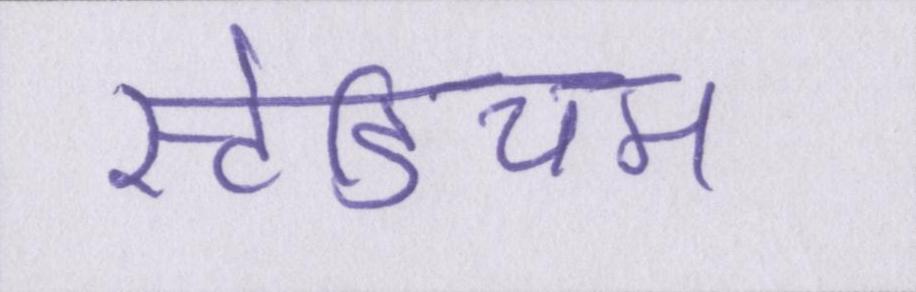 स्टेडियम